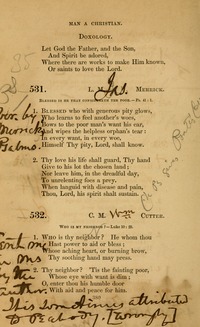 MAN A CHRISTIAN.
DOXOLOGY.
Let God the Father, and the Son,
And Spirit be adored,
Where there are works to make him known,
Or saints to love the Lord.
531. L. Jas. MERRICK.
BLESSED IS HE THAT CONSIDERETH THE POOR.—Ps. 41: 1.
1. BLESSED who with generous pity glows,
Who learns to feel another's woes,
Bows to the poor man's want his ear,
And wipes the helpless orphan's tear:
In every want, in every woe,
Himself Thy pity, Lord, shall know.
2. Thy love his life shall guard, Thy hand
Give to his lot the chosen land;
Nor leave him, in the dreadful day,
To unrelenting foes a prey.
When languid with disease and pain,
Thou, Lord, his spirit shall sustain.
532. C. M. Wm CUTTER.
WHO IS MY NEIGHBOR?—Luke 10: 29.
1. WHO is thy neighbor? He whom thou
Hast power to aid or bless;
Whose aching heart, or burning brow,
Thy soothing hand may press.
2. Thy neighbor? 'Tis the fainting poor,
Whose eye with want is dim;
O, enter thou his humble door
With aid and peace for him.
This 2nd hymn is attributed
to Peabody. [wrongly]